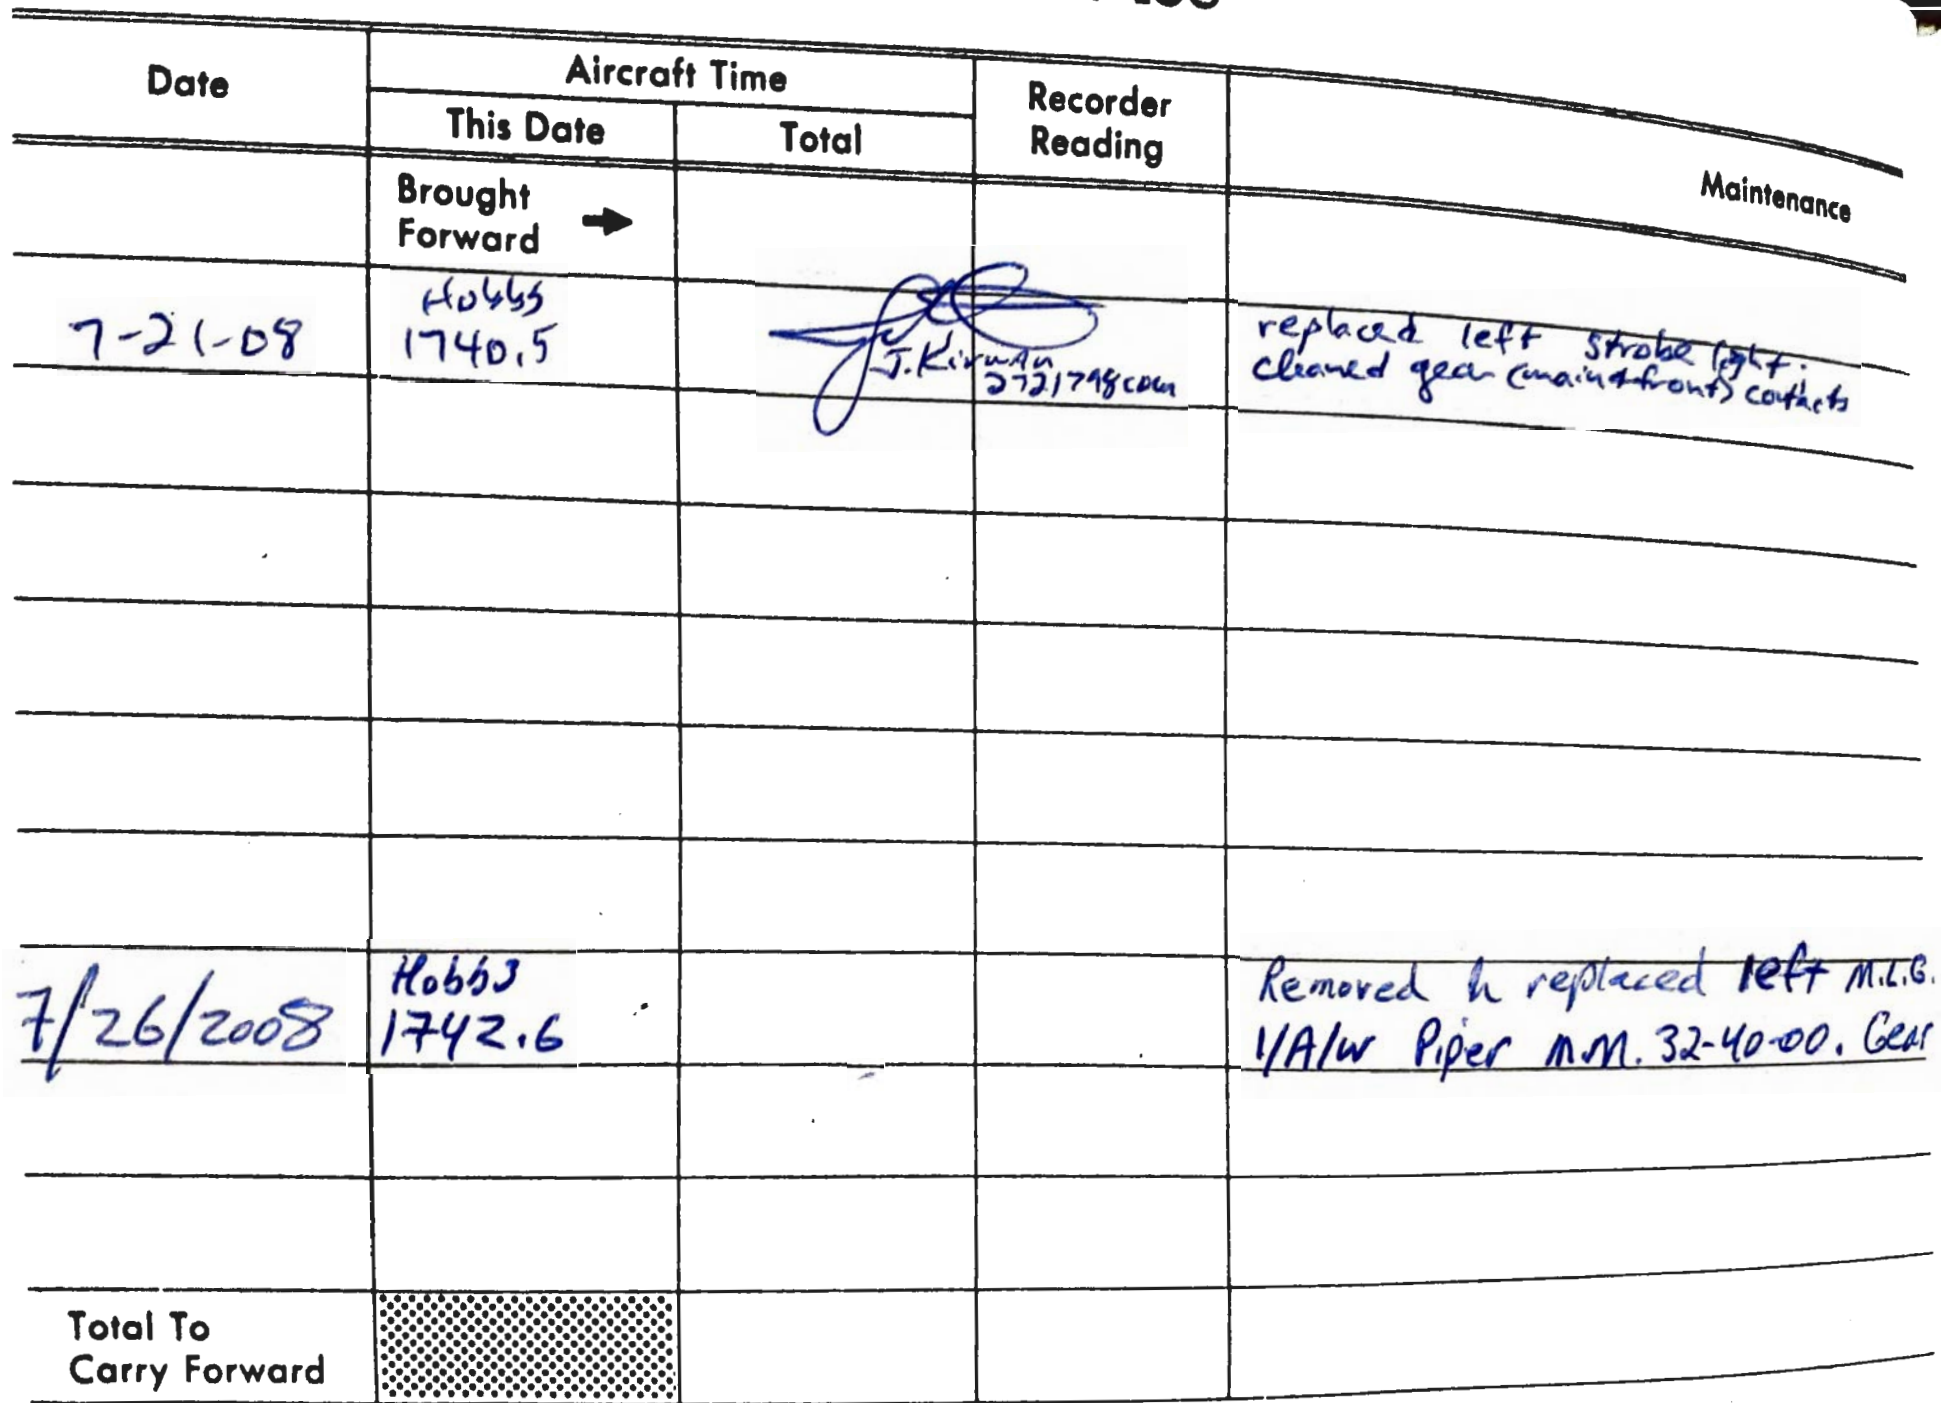 Date
Aircraft Time
This Date
Total
Recorder
Reading
Maintenance
Brought
Forward
7-21-08
Hobbs
1740.5
J. Kirwan
2721798com
replaced left strobe light.
cleaned gear (main & front) contacts
7/26/2008
Hobbs
1742.6
Removed & replaced left M.L.G.
I/A/W Piper M.M. 32-40-00. Gear
Total To
Carry Forward